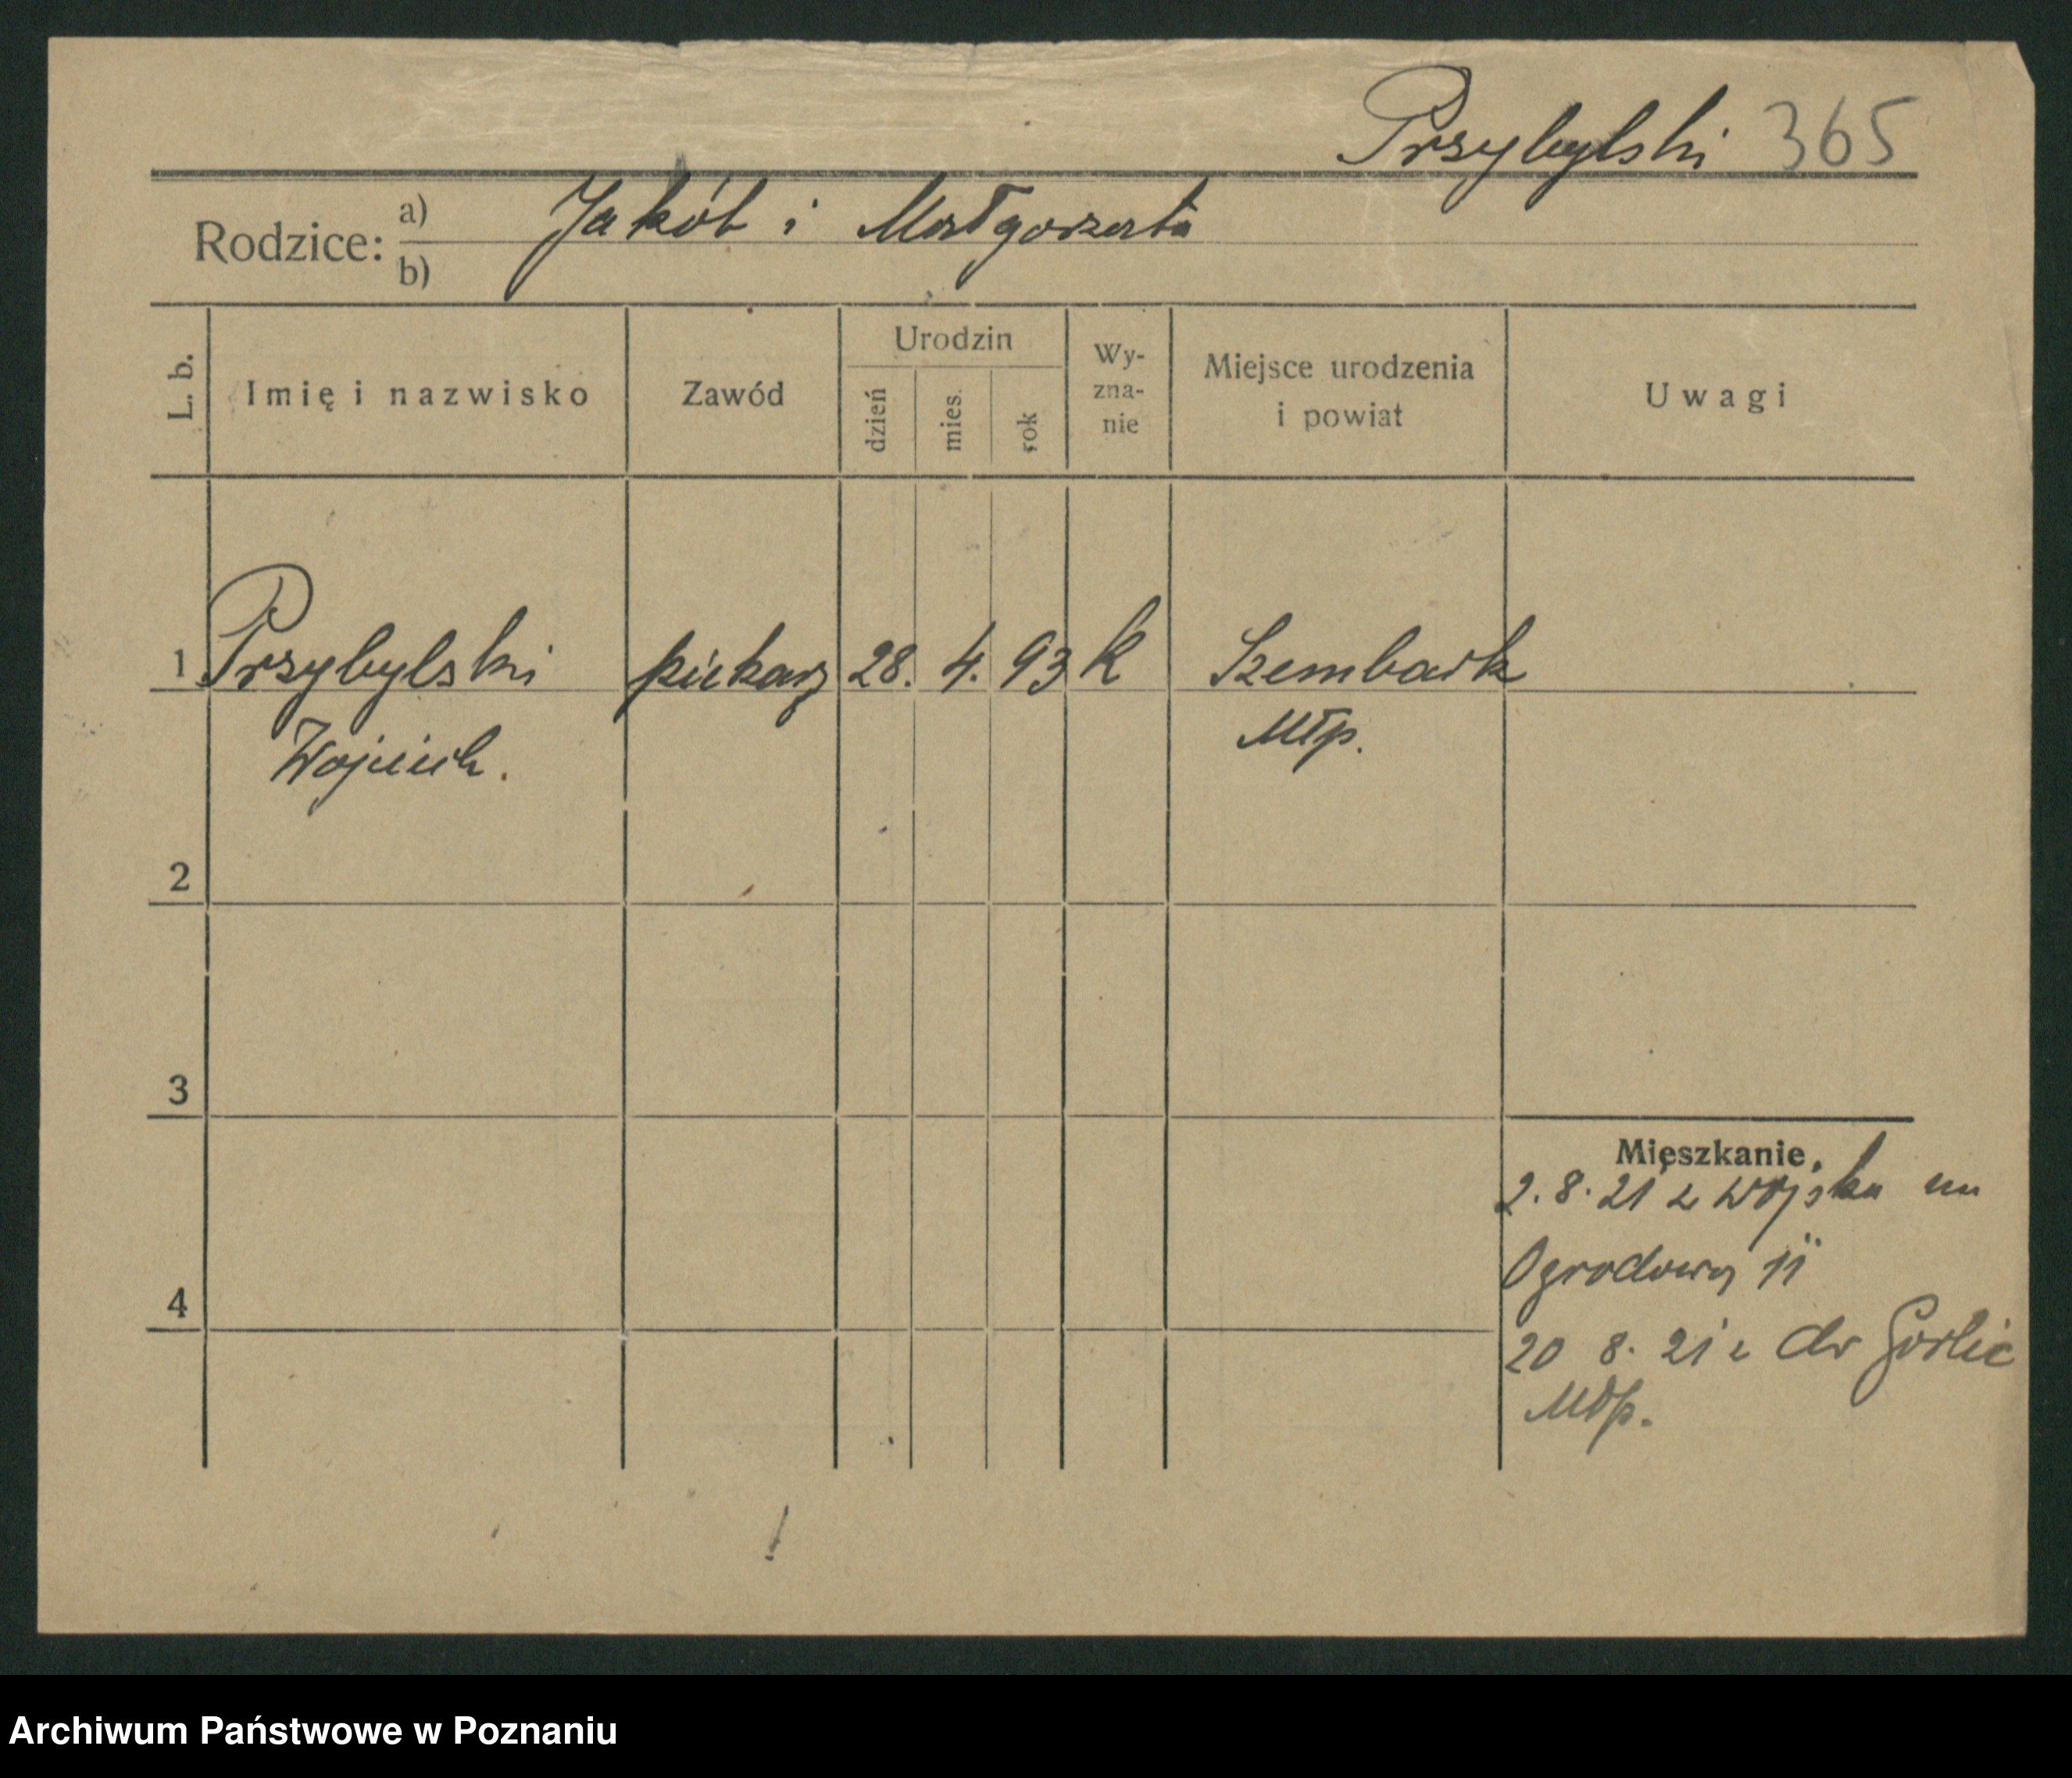 Przybylski 365
Rodzice: a) Jakób i Małgorzata
b)
L. b. Imię i nazwisko Zawód Urodzin dzień mies. rok Wy-zna-nie Miejsce urodzenia i powiat Uwagi
1 Przybylski piekarz 28. 4. 93 k Szembark
Wojciech. Młp.
2
3
Mieszkanie.
2. 8. 21 z wojska na
Ogrodowy 11
4
20 8. 21 do Gorlic
Młp.
Archiwum Państwowe w Poznaniu